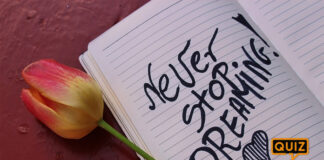 NEVER
STOP
DREAMING!
QUIZ